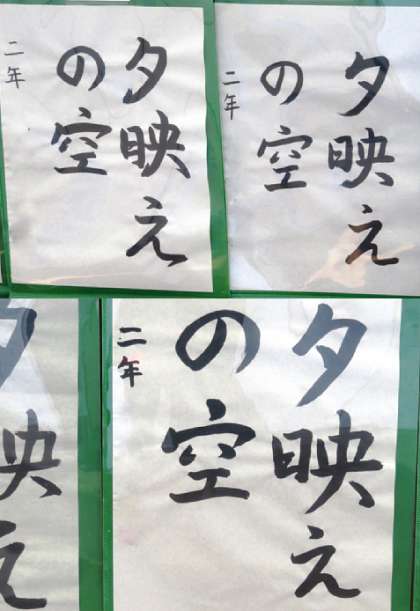 夕映え
の空
二年
夕映え
の空
二年
夕映え
夕映え
の空
二年